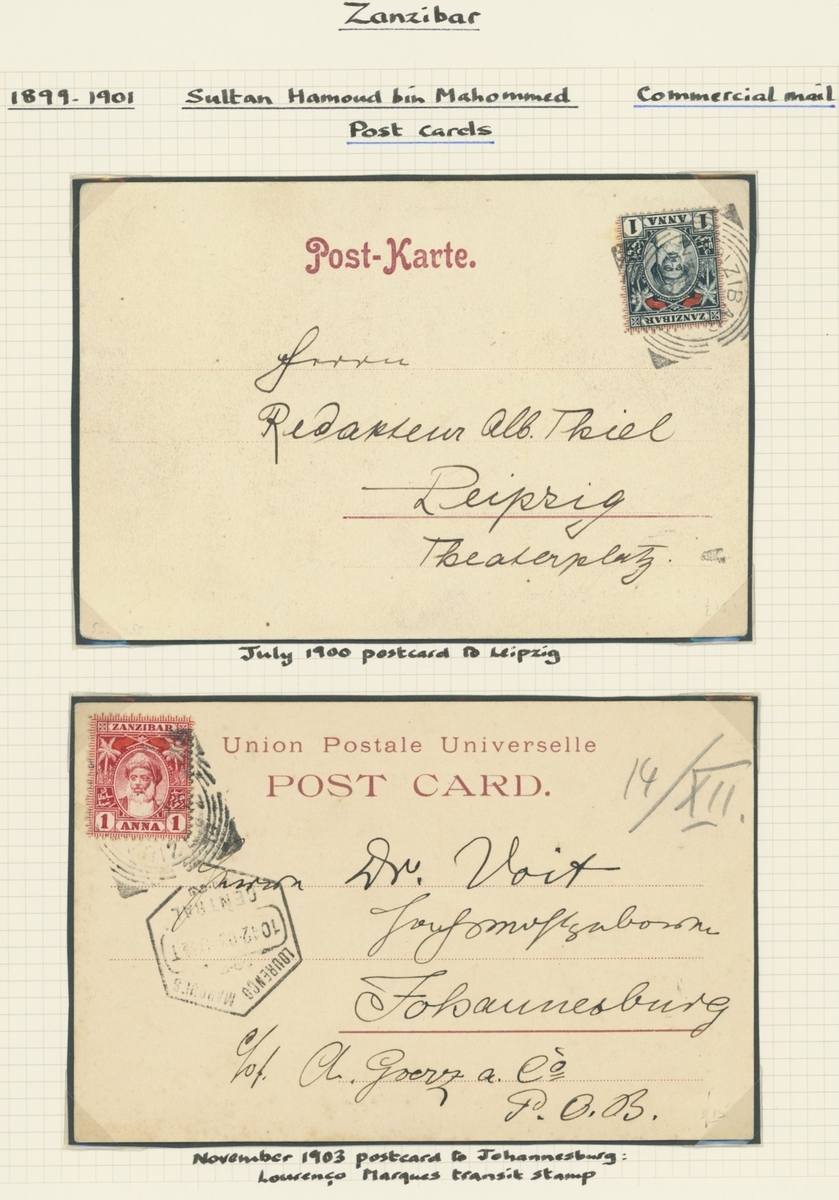 Zanzibar
1899-1901 Sultan Hamoud bin Mahommed Commercial mail
Post Cards
Post-Karte.
1 ANNA 1
ZANZIBAR
ZANZIBAR
Herrn
Redakteur Alb. Thiel
Leipzig
Theaterplatz.
July 1900 postcard to Leipzig
ZANZIBAR
1 ANNA 1
Union Postale Universelle
POST CARD.
14/XII.
Herrn Dr. Voit
Johannesburg
LOURENÇO MARQUES
CENTRAL
c/of. A. Goerz a. Co
P. O. B.
November 1903 postcard to Johannesburg:
Lourenço Marques transit stamp